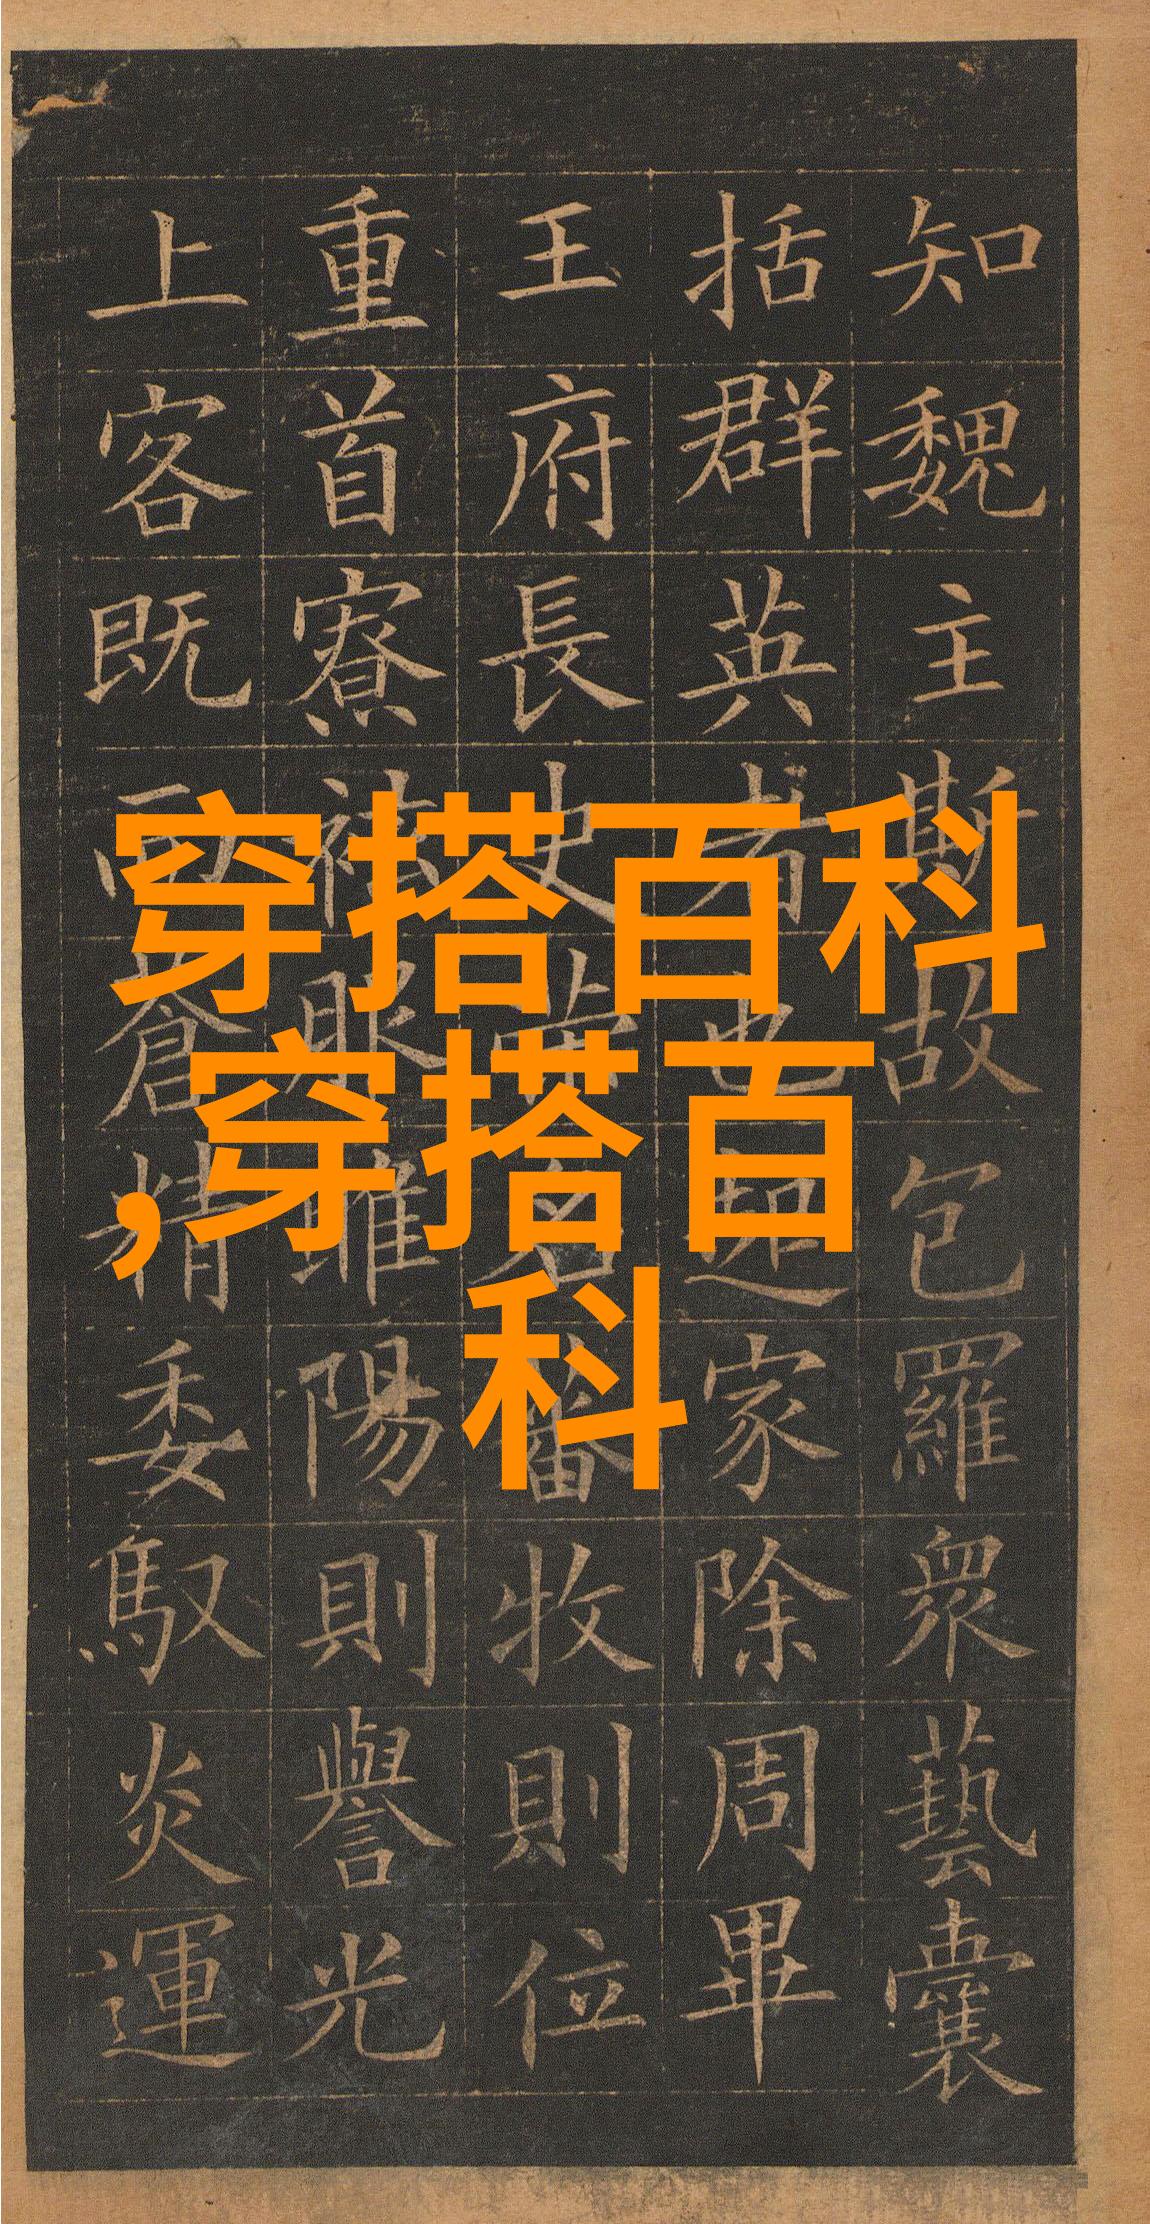 知魏主斯故包羅衆藝囊
括群英者也起家除周畢
王府長史名蕃牧則位
重首寮睢陽則譽光
上客既而蒼精委馭炎運
穿搭百科
,穿搭百
科